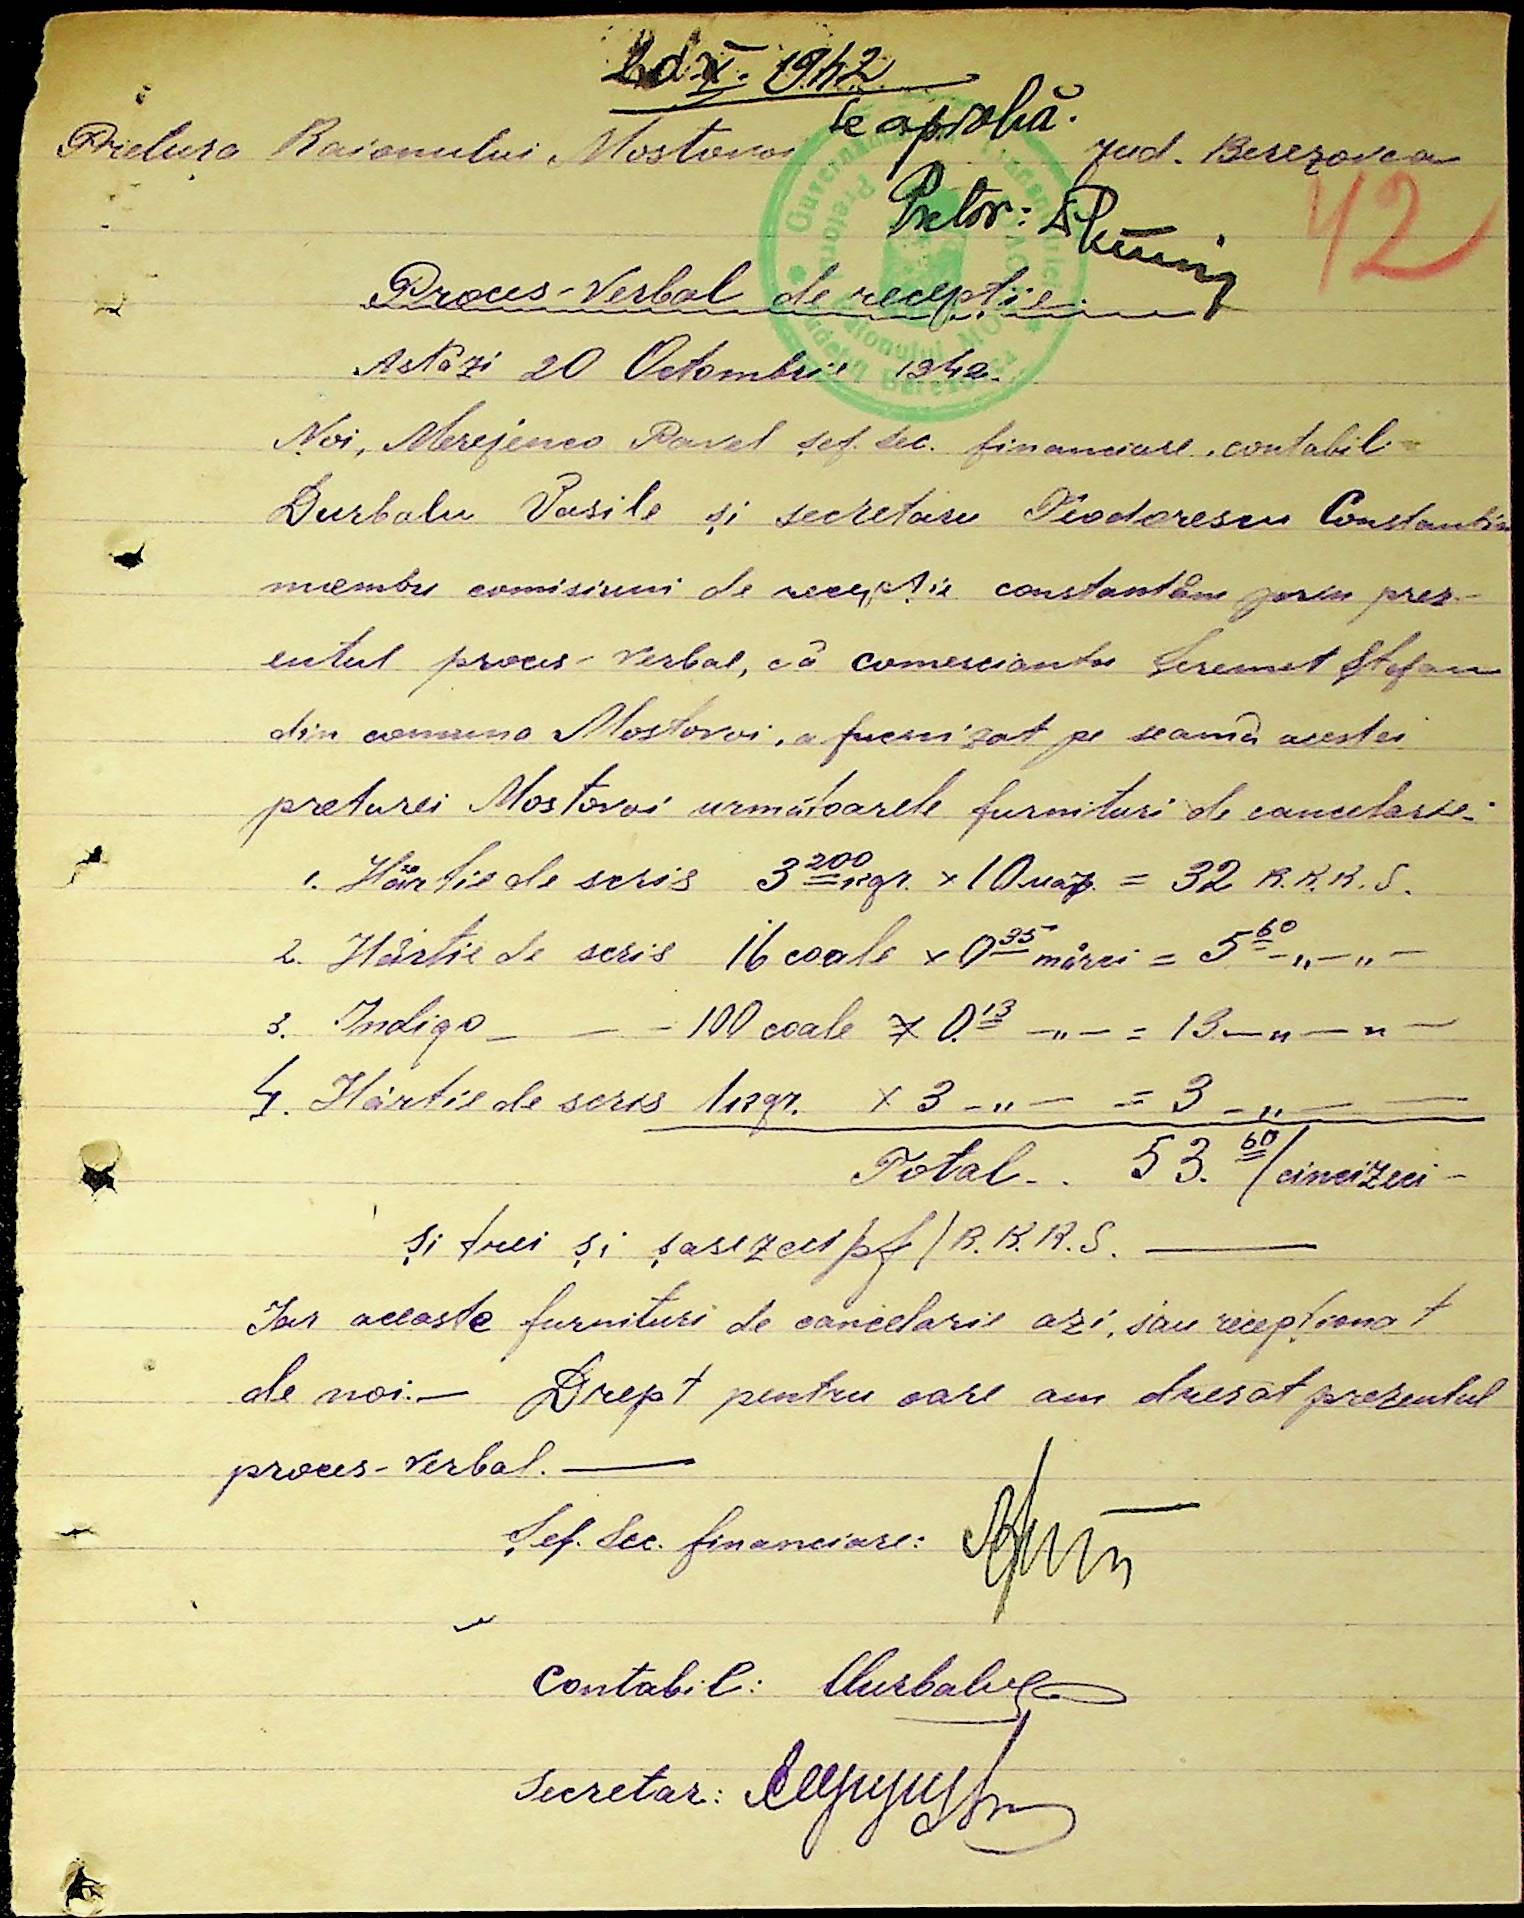 X. 1942
Se aprobă.
Pretura Raionului Mostovoi jud. Berezovca
Pretor:
42
Proces-Verbal de recepție.
Astăzi 20 Octombrie 1942.
Noi, Merejenco Pavel șef. sec. financiare, contabil
Durbalu Vasile și secretaru Teodorescu Constantin
membri comisiuni de recepție constantăm prin prez-
entul proces-verbal, că comerciantu Seremet Ștefan
din comuna Mostovoi, a furnizat pe seamă acestei
preturei Mostovoi următoarele furnituri de cancelarie:
1. Hârtie de scris 3 200 kgr. × 10 = 32 R.K.K.S.
2. Hârtie de scris 16 coale × 0 35 mărci = 5 60 -„-„-
3. Indigo - - - 100 coale × 0. 13 -„- = 13 -„-„-
4. Hârtie de scris 1 kgr. × 3 -„- = 3 -„- -
Total.. 53. 60 /cincizeci-
și trei și șasezeci pf/ R.K.K.S. -
Iar aceaste furnituri de cancelarie azi, sau recepționat
de noi.- Drept pentru care am dresat prezentul
proces-verbal. -
Șef. Sec. financiare:
Contabil: Durbalu
Secretar: